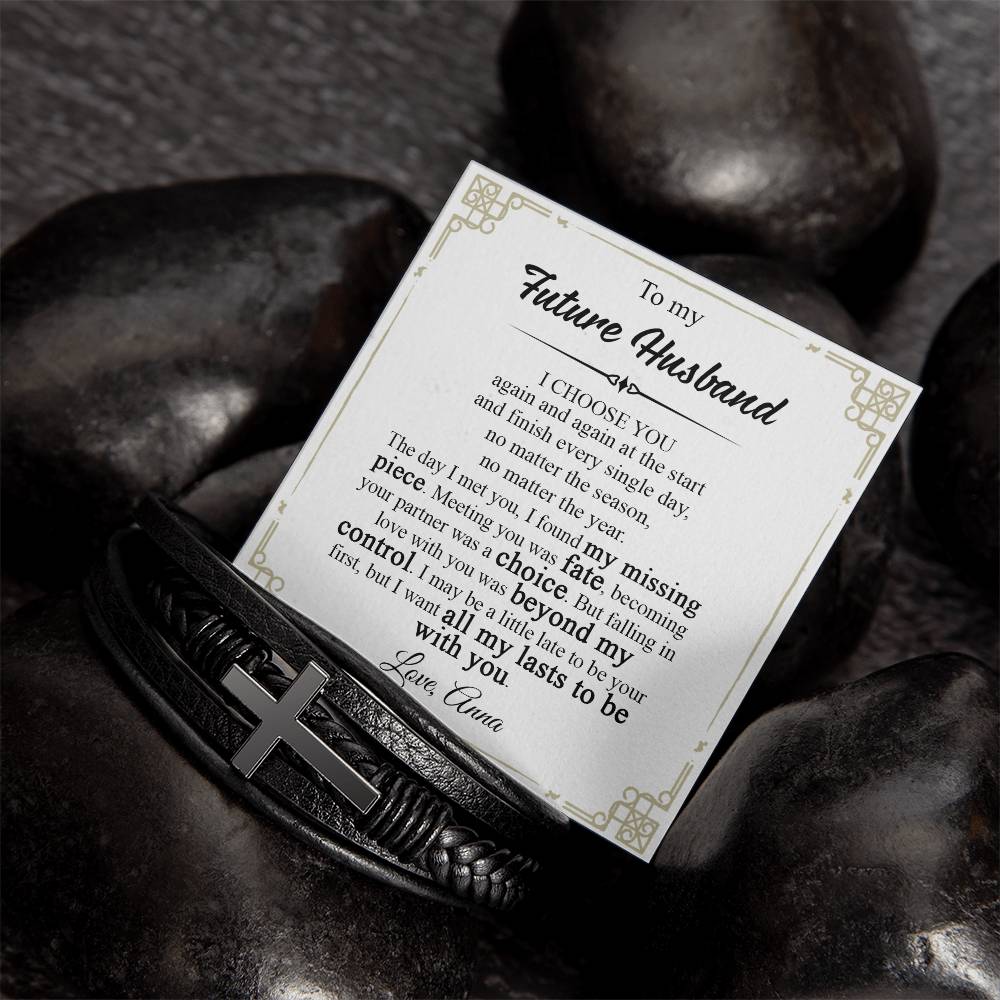 To my
Future Husband
I CHOOSE YOU
again and again at the start
and finish every single day,
no matter the season,
no matter the year.
The day I met you, I found my missing
piece. Meeting you was fate, becoming
your partner was a choice. But falling in
love with you was beyond my
control. I may be a little late to be your
first, but I want all my lasts to be
with you.
Love, Anna